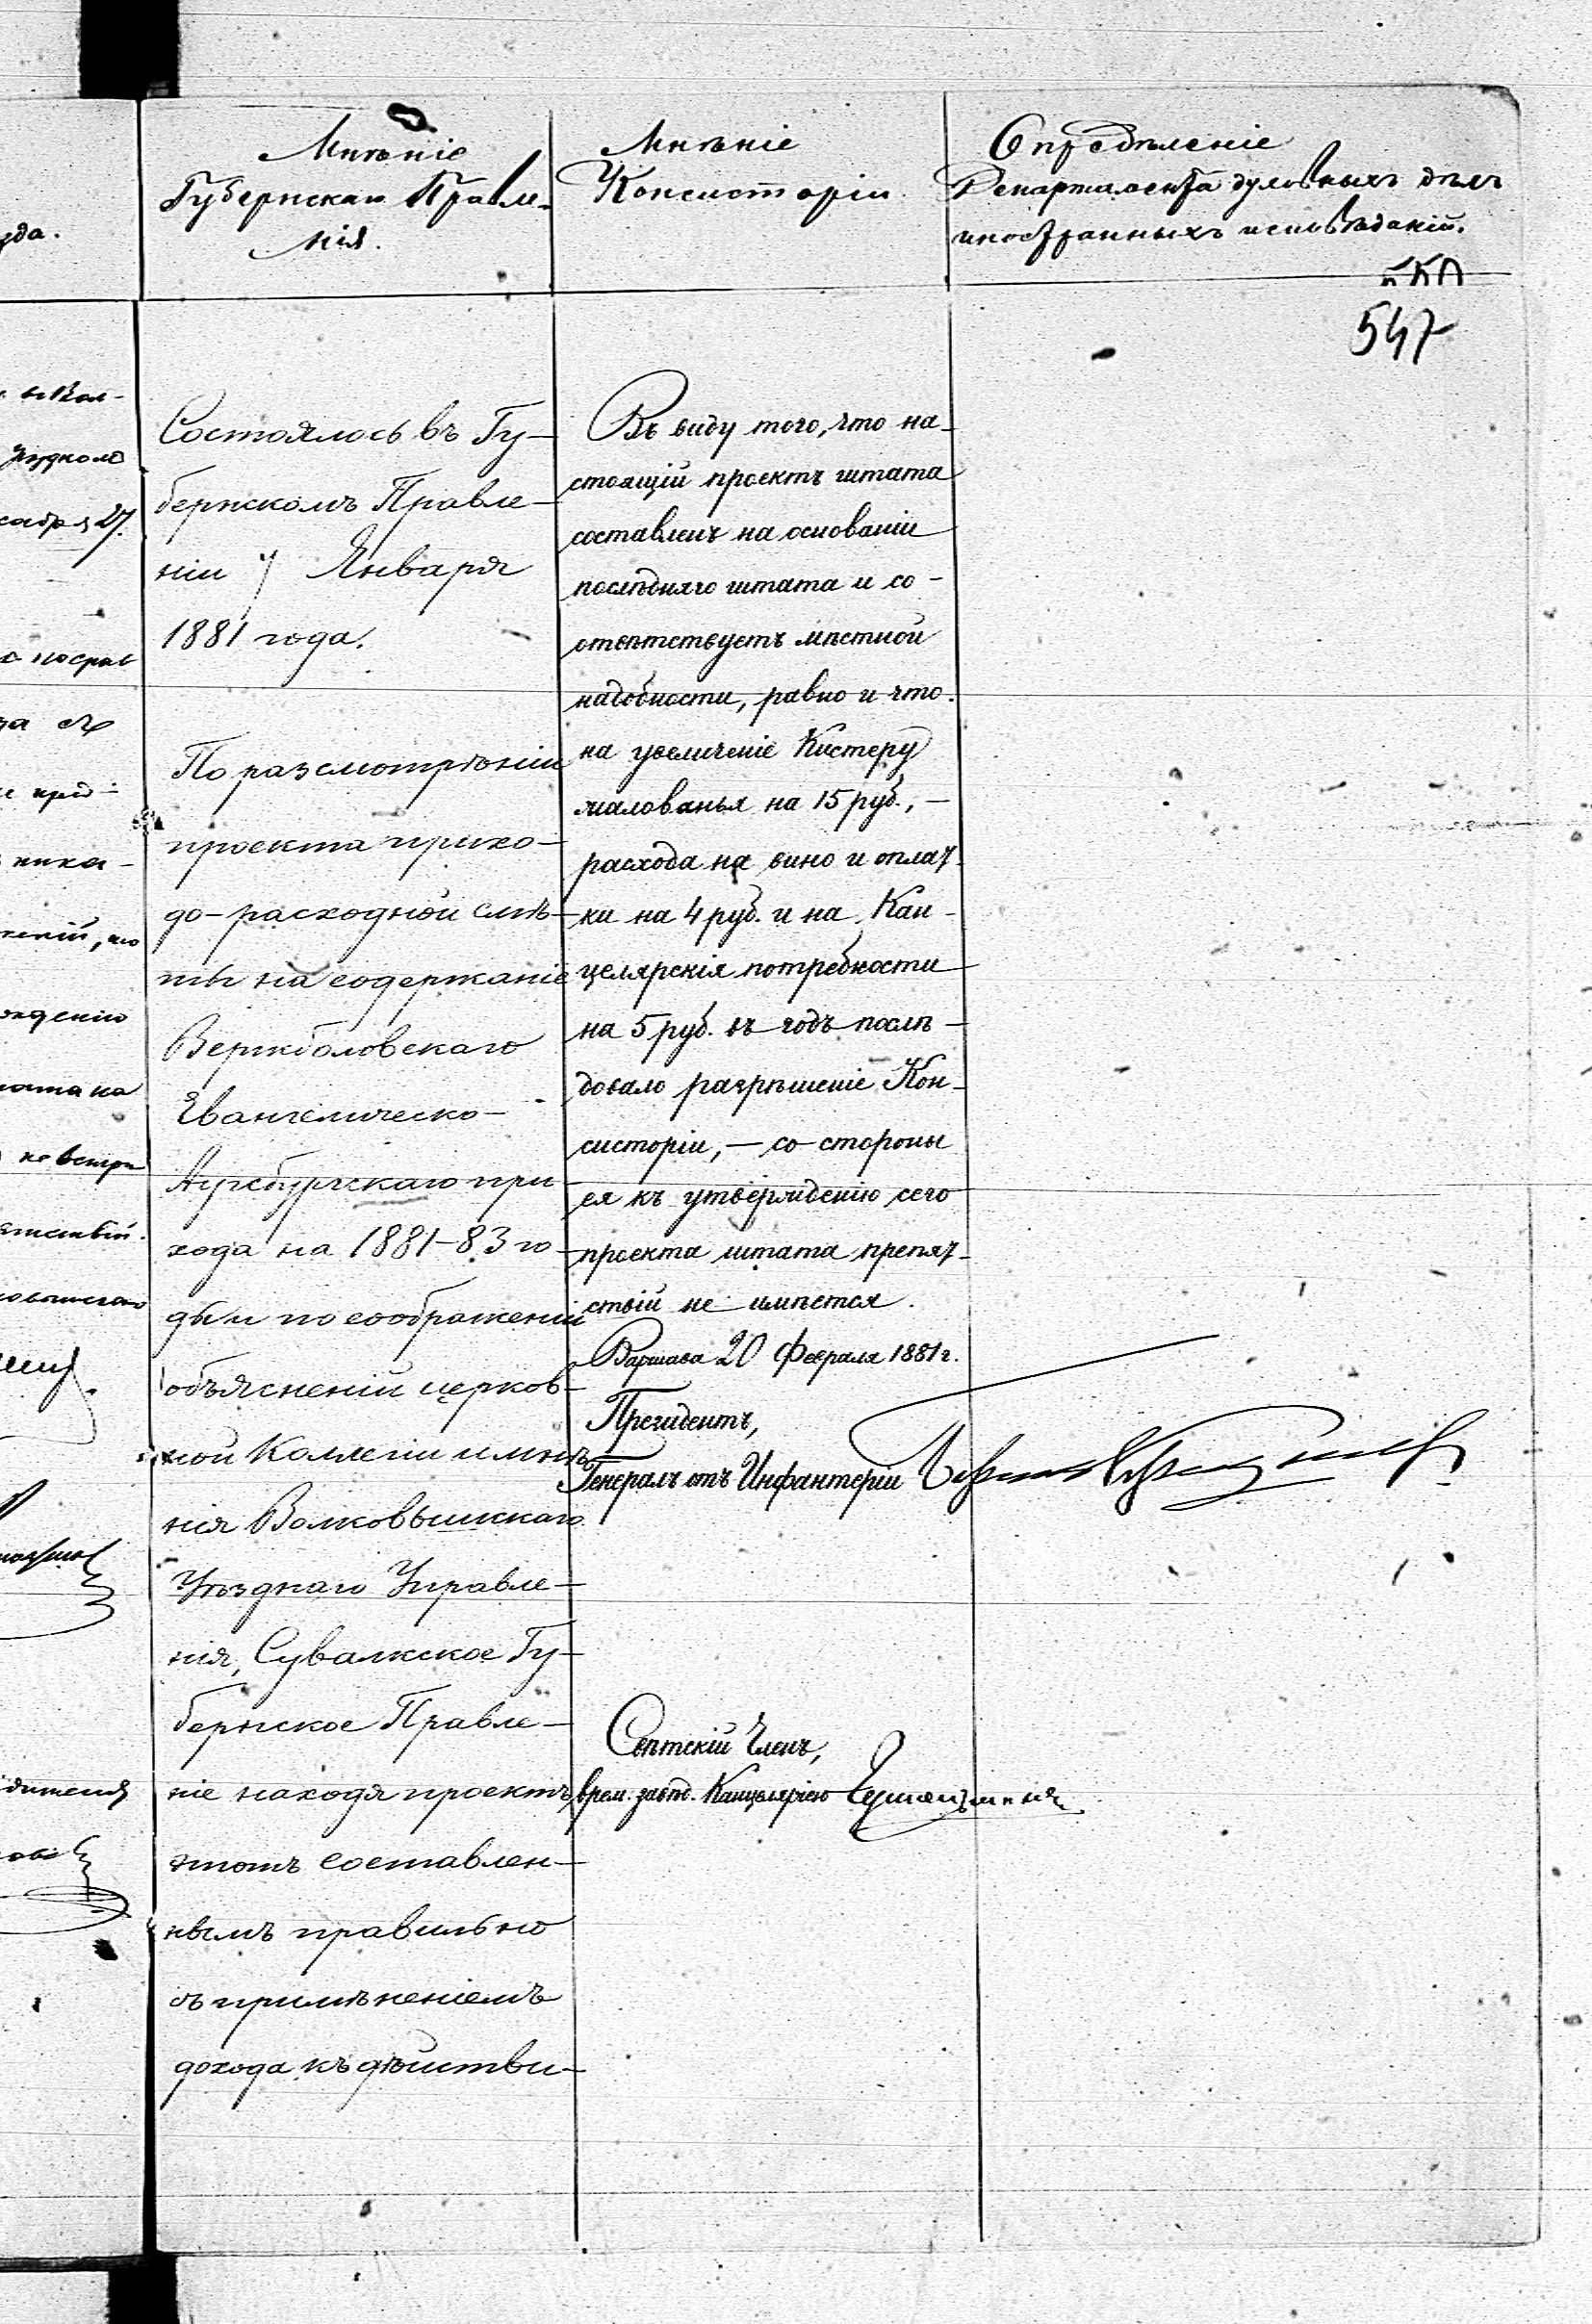 Мнѣніе
Губернскаго Правле-
нія.
Мнѣніе
Консисторіи.
Опредѣленіе
Департамента духовныхъ дѣлъ
иностранныхъ исповѣданій.
547
Состоялось въ Гу-
бернскомъ Правле-
ніи 7 Января
1881 года.
По разсмотрѣніи
проекта прихо-
до-расходной смѣ-
ты на содержаніе
Вержболовскаго
Евангелическо-
Аугсбургскаго при-
хода на 1881-83 го-
ды и по соображеніи
объясненій церков-
ной Коллегіи и мнѣ-
нія Волковышскаго
Уѣзднаго Управле-
нія, Сувалкское Гу-
бернское Правле-
ніе находя проектъ
этотъ составлен-
нымъ правильно
съ примѣненіемъ
дохода къ дѣйстви-
Въ виду того, что на-
стоящій проектъ штата
составленъ на основаніи
послѣдняго штата и со-
отвѣтствуетъ мѣстной
надобности, равно и что
на увеличеніе Кистеру
жалованья на 15 руб., —
расхода на вино и оплат-
ки на 4 руб. и на Кан-
целярскія потребности
на 5 руб. въ годъ послѣ-
довало разрѣшеніе Кон-
систоріи, — со стороны
ея къ утвержденію сего
проекта штата препят-
ствій не имѣется.
Варшава 20 Февраля 1881 г.
Президентъ,
Генералъ отъ Инфантеріи
Свѣтскій Членъ,
врем. завѣд. Канцеляріею